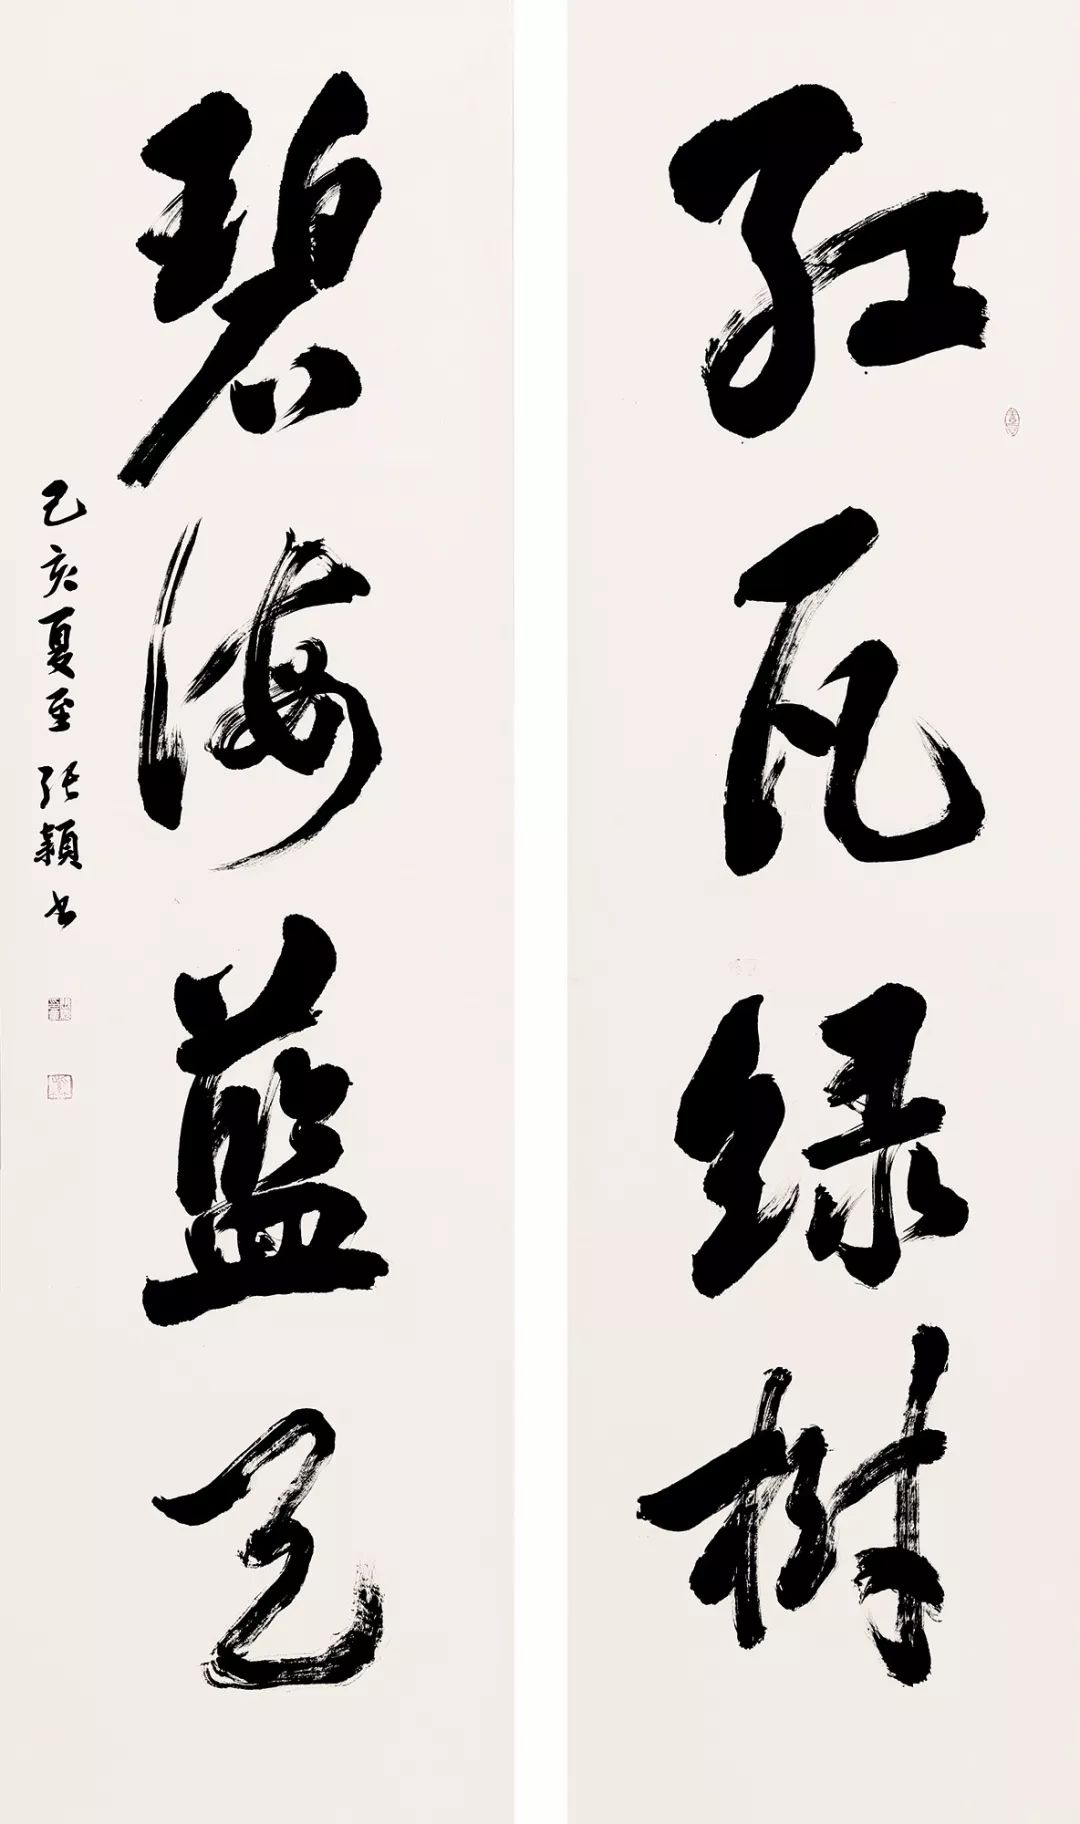 红瓦绿树
碧海蓝天
己亥夏至张颖书